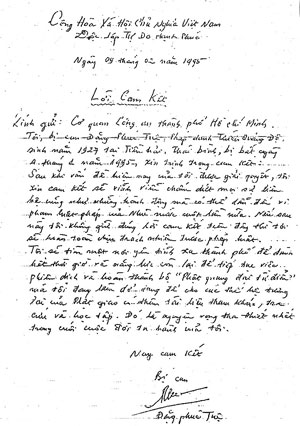 Cộng Hòa Xã Hội Chủ Nghĩa Việt Nam
Độc Lập Tự Do Hạnh Phúc
Ngày 03 tháng 02 năm 1995
Lời Cam Kết
Kính gửi: Cơ quan Công an thành phố Hồ Chí Minh.
Tôi, bị can Đặng Phúc Tuệ, Pháp danh Thích Quảng Độ
sinh năm 1927 tại Tiền hải, Thái bình, bị bắt ngày
4 tháng 1 năm 1995, xin trình trong cam kết:
Sau khi vấn đề hiện nay của tôi được giải quyết, tôi
xin cam kết sẽ vĩnh viễn chấm dứt mọi sự liên
hệ cũng như những hành động mà có thể dẫn đến vi
phạm luật pháp của Nhà nước một lần nữa. Nếu sau
này tôi không giữ đúng lời cam kết trên đây thì tôi
sẽ hoàn toàn chịu trách nhiệm trước pháp luật.
Tôi sẽ tìm một nơi yên tĩnh tại thành phố để dành
hết thời giờ và năng lực còn lại để tiếp tục viên
phiên dịch và hoàn thành bộ "Phật quang đại từ điển"
mà tôi đang làm dở dang để cho các thế hệ tương
lai của Phật giáo có thêm tài liệu tham khảo, tra
cứu và học tập. Đó là nguyện vọng tha thiết nhất
trong cuộc đời tu hành của tôi.
Nay cam kết
Bị can
Đặng Phúc Tuệ